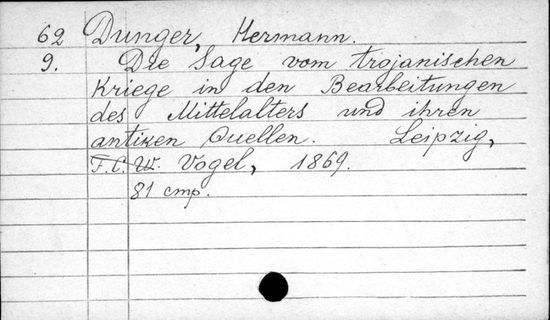 62 Dunger, Hermann.
9. Die Sage vom trojanischen
Kriege in den Bearbeitungen
des Mittelalters und ihren
antiken Quellen. Leipzig,
F.C.W. Vogel, 1869.
81 стр.